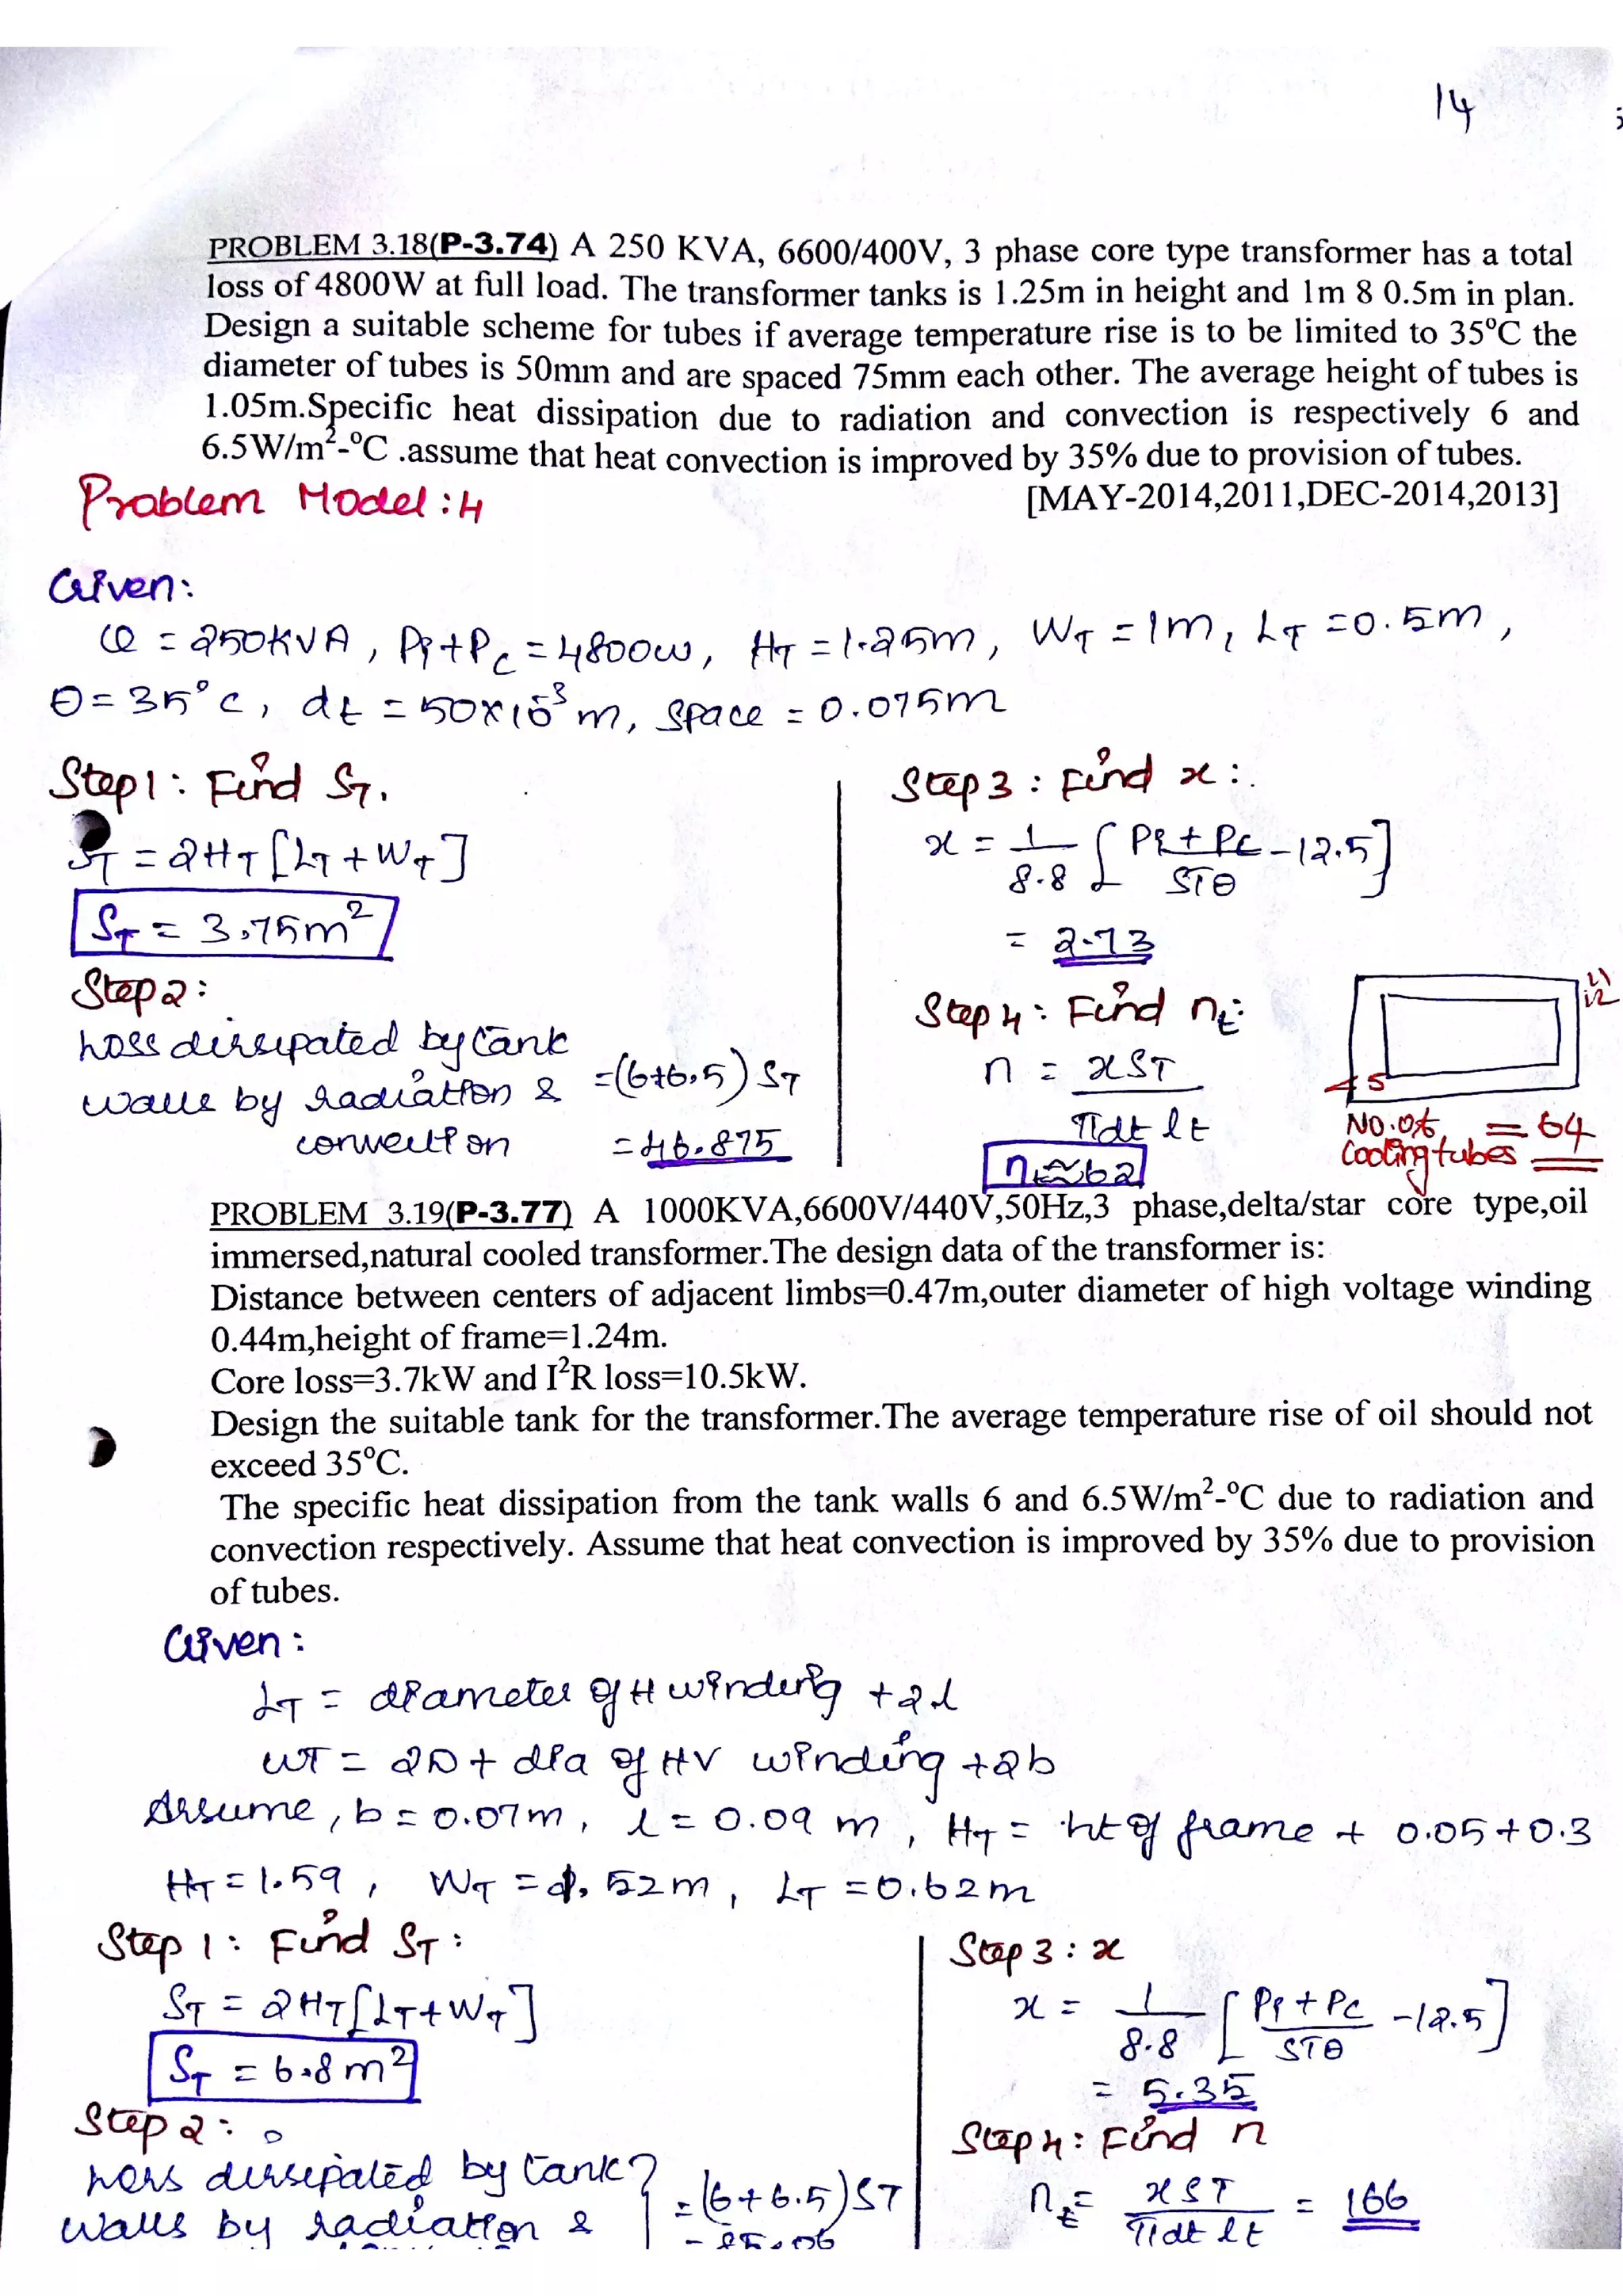 14
PROBLEM 3.18(P-3.74) A 250 KVA, 6600/400V, 3 phase core type transformer has a total
loss of 4800W at full load. The transformer tanks is 1.25m in height and 1m 8 0.5m in plan.
Design a suitable scheme for tubes if average temperature rise is to be limited to 35⁰C the
diameter of tubes is 50mm and are spaced 75mm each other. The average height of tubes is
1.05m.Specific heat dissipation due to radiation and convection is respectively 6 and
6.5W/m²-⁰C .assume that heat convection is improved by 35% due to provision of tubes.
[MAY-2014,2011,DEC-2014,2013]
Problem Model : 4
Given:
Q = 250KVA, Pi+Pc = 4800w, HT = 1.25m, WT = 1m, LT = 0.5m,
θ = 35°c, dt = 50×10⁻³ m, Space = 0.075m
Step1 : Find ST.
ST = 2HT [LT + WT]
ST = 3.75m²
Step2 :
Loss dissipated by tank
walls by radiation & = (6+6.5) ST
convection = 46.875
Step 3 : Find x :
x = 1/8.8 [ Pi + Pc / STθ - 12.5 ]
= 2.73
Step 4 : Find nt :
n = xST / πdt lt
nt ≈ 62
No. of cooling tubes = 64
PROBLEM 3.19(P-3.77) A 1000KVA,6600V/440V,50Hz,3 phase,delta/star core type,oil
immersed,natural cooled transformer.The design data of the transformer is:
Distance between centers of adjacent limbs=0.47m,outer diameter of high voltage winding
0.44m,height of frame=1.24m.
Core loss=3.7kW and I²R loss=10.5kW.
Design the suitable tank for the transformer.The average temperature rise of oil should not
exceed 35⁰C.
The specific heat dissipation from the tank walls 6 and 6.5W/m²-⁰C due to radiation and
convection respectively. Assume that heat convection is improved by 35% due to provision
of tubes.
Given :
LT = diameter of H winding + 2l
WT = 2D + dia of HV winding + 2b
Assume, b = 0.07m, l = 0.09 m, HT = ht of frame + 0.05 + 0.3
HT = 1.59, WT = 1.52m, LT = 0.62m
Step 1 : Find ST :
ST = 2HT [LT + WT]
ST = 6.8 m²
Step 2 :
Loss dissipated by tank
walls by radiation & = (6+6.5) ST
Step 3 : x
x = 1/8.8 [ Pi + Pc / STθ - 12.5 ]
= 5.35
Step 4 : Find n
nt = xST / πdt lt = 166